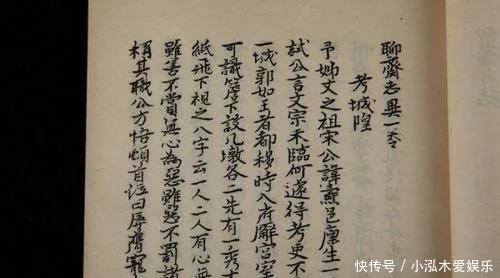 聊齋志異一卷
考城隍
予姊丈之祖宋公諱燾邑廩生一
試公言文宗未臨何遽得考吏不
一城郭如王者都移時入府廨宮室
可識簷下設几墩各二先有一秀才
紙飛下視之八字云一人二人有心無
雖善不賞無心為惡雖惡不罰諸
稱其職公方悟頓首泣曰辱膺寵
快传号 / 小泓木爱娱乐